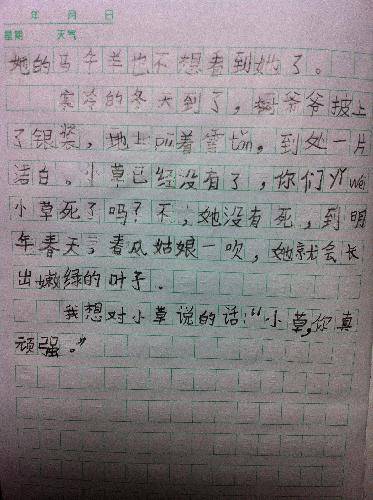 年 月 日
星期 天气
她的马牛羊也不想看到她了。
寒冷的冬天到了，树爷爷披上
了银装，地上pū着雪tǎn。到处一片
洁白。小草已经没有了，你们yǐ wéi
小草死了吗？不，她没有死，到明
年春天，春风姑娘一吹，她就会长
出嫩绿的叶子.
我想对小草说的话：“小草，你真
顽强。”